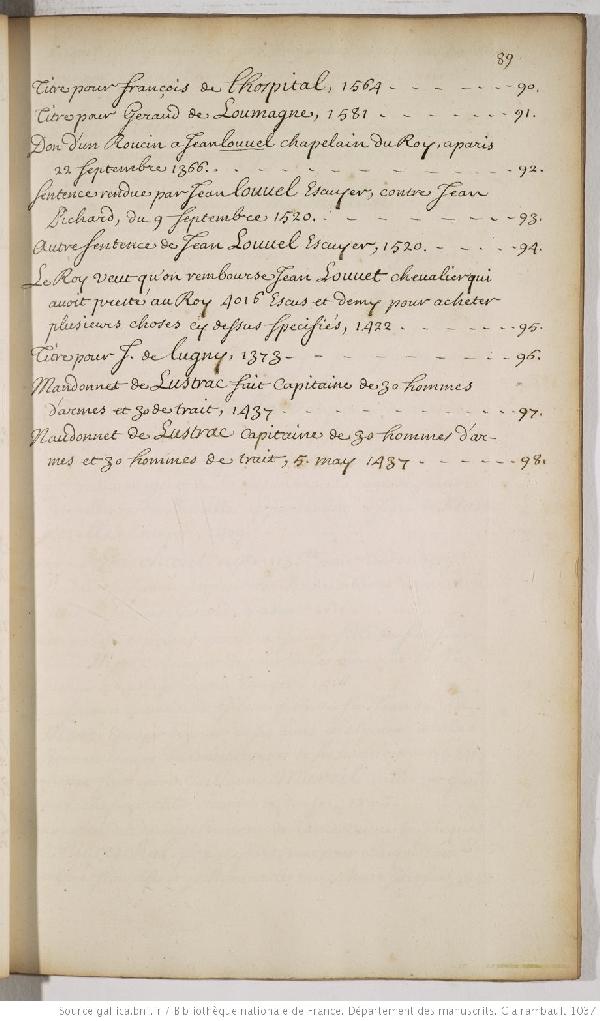 89
Titre pour françois de lhospital, 1564 - - - - - - - 90.
Titre pour Geraud de Loumagne, 1581 - - - - - - 91.
Don d'un Roucin a Jean louvel chapelain du Roy, a paris
22 septembre 1366. - - - - - - - - - - 92.
Sentence rendue par Jean louvel Escuyer, contre Jean
Pichard, du 9 septembre 1520. - - - - - - - 93.
Autre sentence de Jean Louvel Escuyer, 1520. - - - - 94.
Le Roy veut qu'on rembourse Jean Louvet chevalier qui
avoit presté au Roy 4016 Escus et demy pour acheter
plusieurs choses cy dessus specifiés, 1422 - - - - - 95.
Titre pour J. de lugny, 1373 - - - - - - - - 96.
Mandonnet de Lustrac fait Capitaine de 30 hommes
d'armes et 30 de trait, 1437 - - - - - - - - - 97.
Naudonnet de Lustrac Capitaine de 30 hommes d'ar-
mes et 30 hommes de trait, 5. may 1437 - - - - - 98.
Source gallica.bnf.fr / Bibliothèque nationale de France. Département des manuscrits. Clairambault 1037